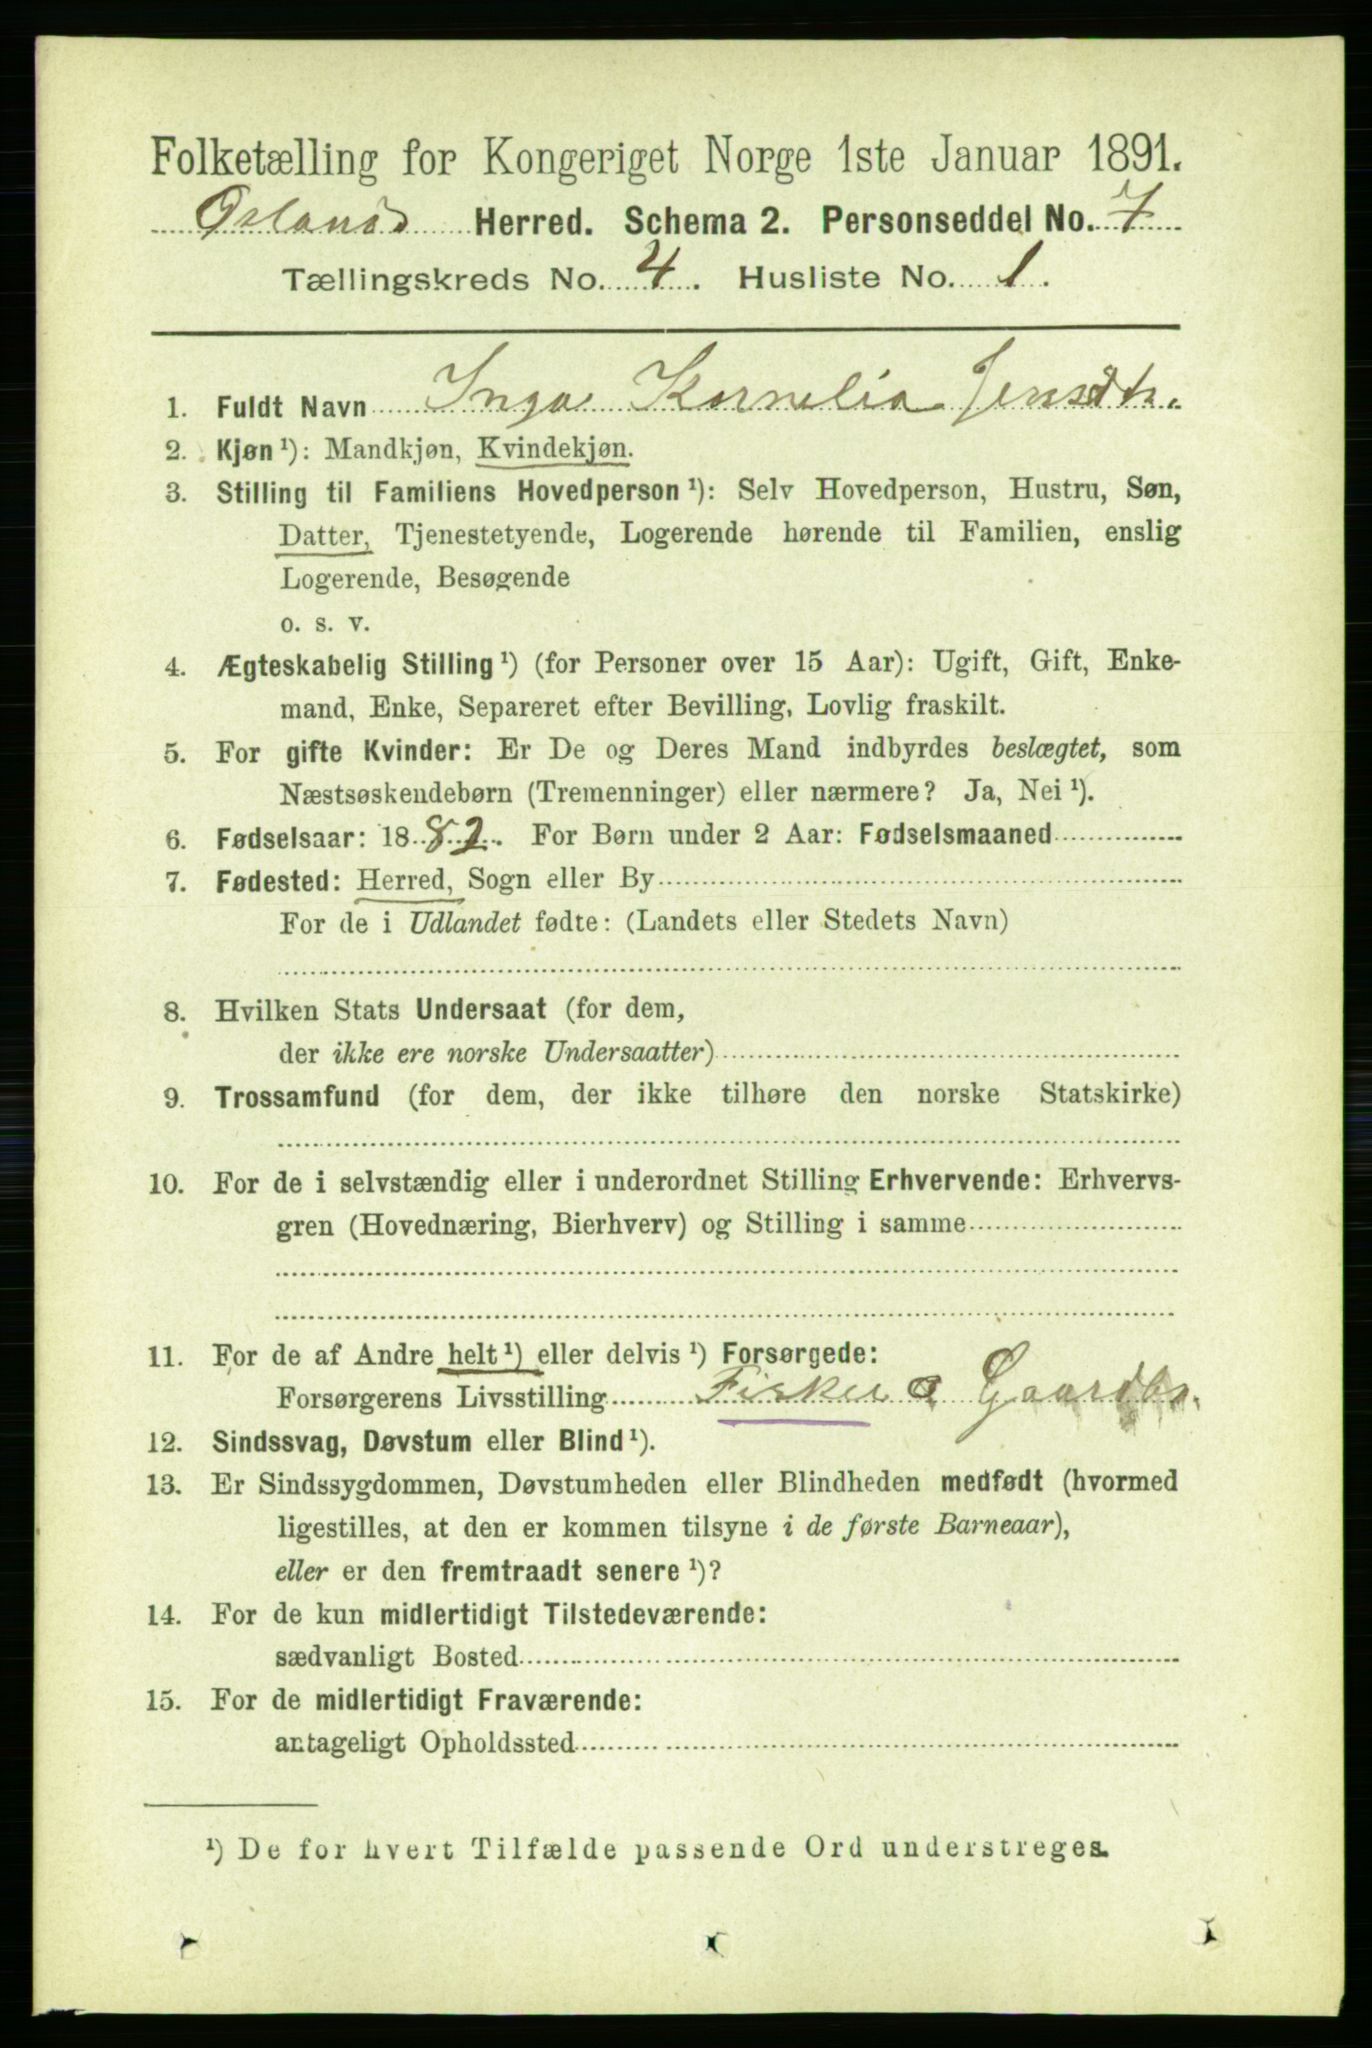 Folketælling for Kongeriget Norge 1ste Januar 1891.
Ørlands Herred. Schema 2. Personseddel No. 7
Tællingskreds No. 4. Husliste No. 1.
1. Fuldt Navn Inga Kornelia Jensdtr.
2. Kjøn ¹): Mandkjøn, Kvindekjøn.
3. Stilling til Familiens Hovedperson ¹): Selv Hovedperson, Hustru, Søn,
Datter, Tjenestetyende, Logerende hørende til Familien, enslig
Logerende, Besøgende
o. s. v.
4. Ægteskabelig Stilling ¹) (for Personer over 15 Aar): Ugift, Gift, Enke-
mand, Enke, Separeret efter Bevilling, Lovlig fraskilt.
5. For gifte Kvinder: Er De og Deres Mand indbyrdes beslægtet, som
Næstsøskendebørn (Tremenninger) eller nærmere? Ja, Nei ¹).
6. Fødselsaar: 1882. For Børn under 2 Aar: Fødselsmaaned
7. Fødested: Herred, Sogn eller By
For de i Udlandet fødte: (Landets eller Stedets Navn)
8. Hvilken Stats Undersaat (for dem,
der ikke ere norske Undersaatter)
9. Trossamfund (for dem, der ikke tilhøre den norske Statskirke)
10. For de i selvstændig eller i underordnet Stilling Erhvervende: Erhvervs-
gren (Hovednæring, Bierhverv) og Stilling i samme
11. For de af Andre helt ¹) eller delvis ¹) Forsørgede:
Forsørgerens Livsstilling Fisker o Gaardbr.
12. Sindssvag, Døvstum eller Blind ¹).
13. Er Sindssygdommen, Døvstumheden eller Blindheden medfødt (hvormed
ligestilles, at den er kommen tilsyne i de første Barneaar),
eller er den fremtraadt senere ¹)?
14. For de kun midlertidigt Tilstedeværende:
sædvanligt Bosted
15. For de midlertidigt Fraværende:
antageligt Opholdssted
¹) De for hvert Tilfælde passende Ord understreges.